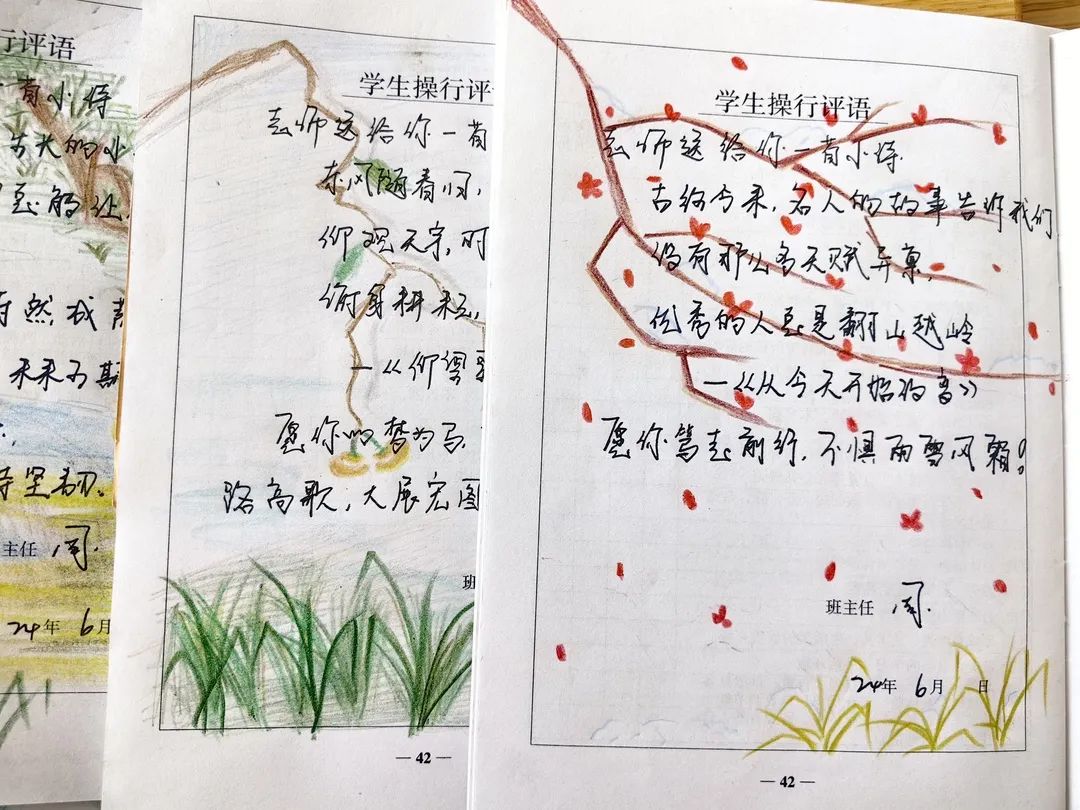 行评语
首小诗
的小
未来可期
坚韧。
主任 周.
24年 6月
学生操行评
老师送给你一首
东风随春归,
仰观天宇,时
俯身耕耘,
—《仰望
愿你以梦为马,
路高歌,大展宏图
班
— 42 —
学生操行评语
老师送给你一首小诗.
古往今来,名人的故事告诉我们
没有那么多天赋异禀,
优秀的人总是翻山越岭
—《从今天开始
愿你笃志前行,不惧雨雪风霜!
班主任 周.
24年 6月 日
— 42 —